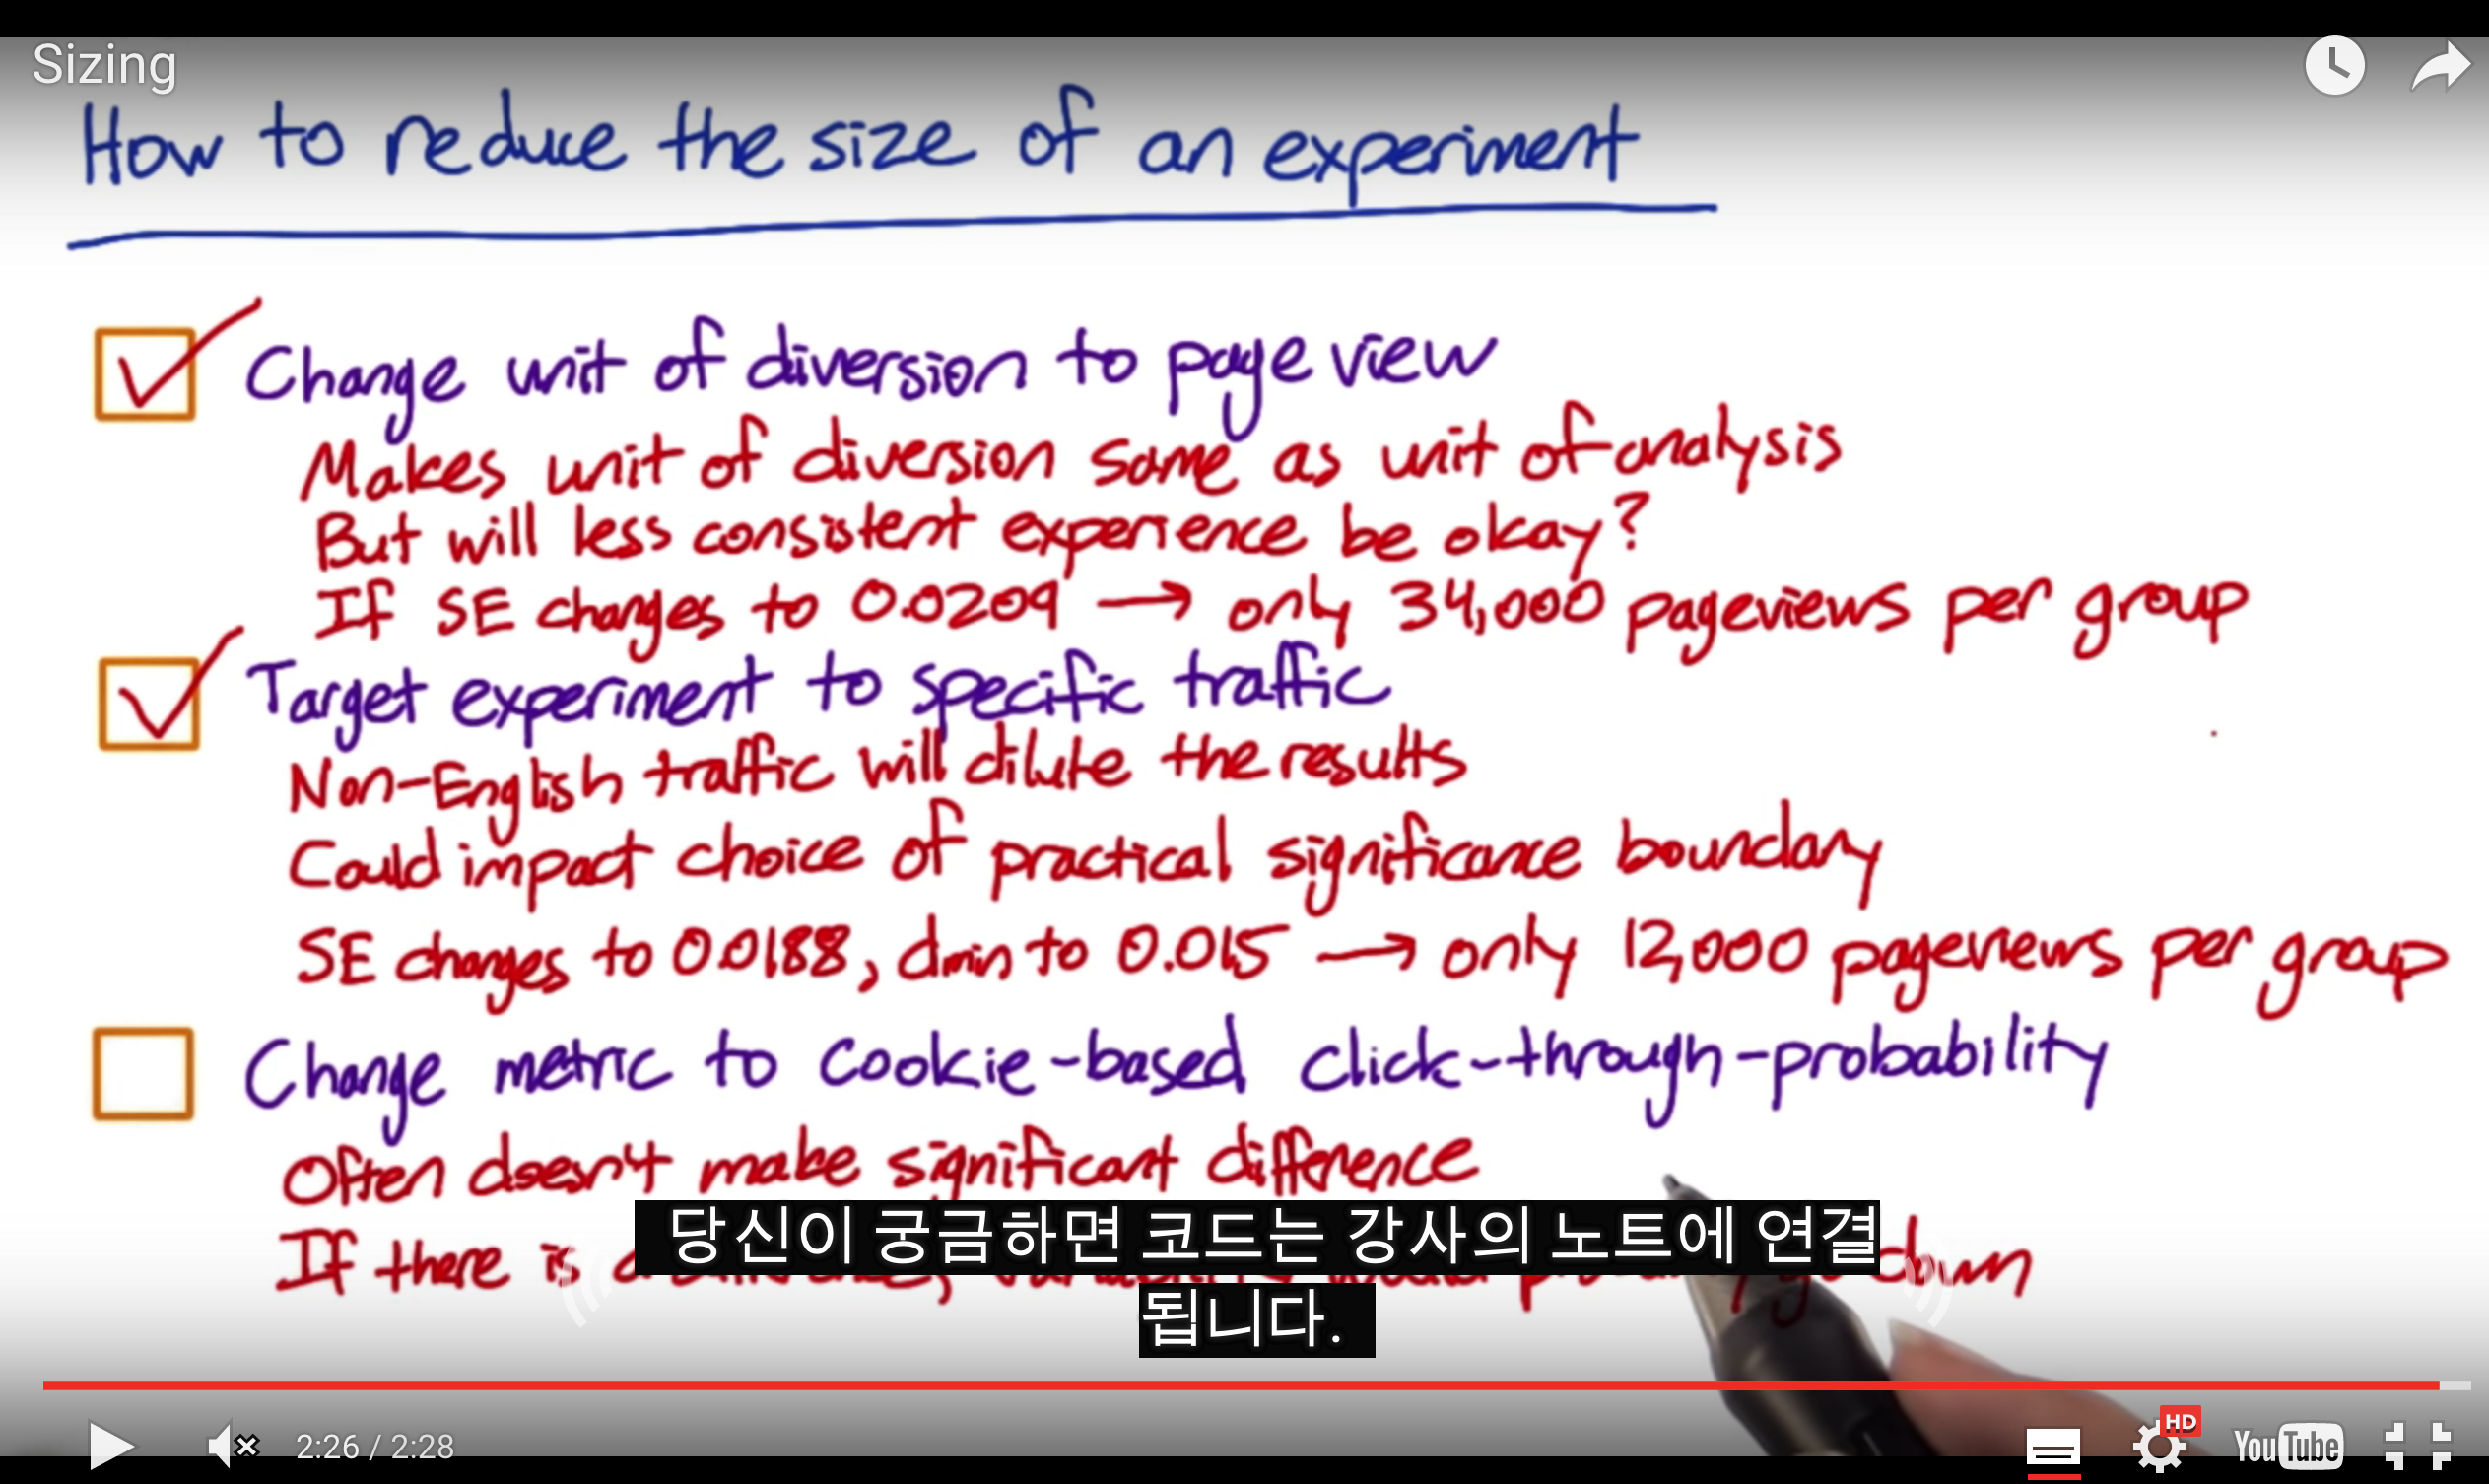 Sizing
How to reduce the size of an experiment
Change unit of diversion to page view
Makes unit of diversion same as unit of analysis
But will less consistent experience be okay?
If SE changes to 0.0209 → only 34,000 pageviews per group
Target experiment to specific traffic
Non-English traffic will dilute the results
Could impact choice of practical significance boundary
SE changes to 0.0188, dmin to 0.015 → only 12,000 pageviews per group
Change metric to cookie-based click-through-probability
Often doesn't make significant difference
If there is down
당신이 궁금하면 코드는 강사의 노트에 연결
됩니다.
2:26 / 2:28
HD
YouTube